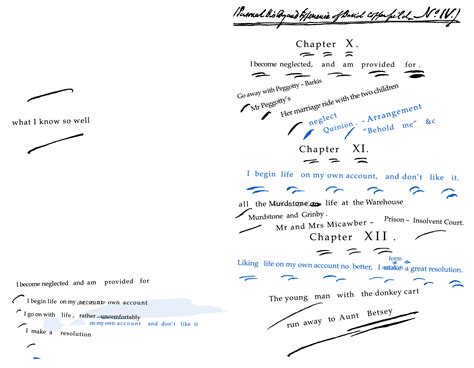 what I know so well
I become neglected and am provided for
I begin life on my account own account
I go on with life, rather uncomfortably
on my own account and don't like it
I make a resolution
(Personal History and Experience of David Copperfield _ No IV.)
Chapter X.
I become neglected, and am provided for.
Go away with Peggotty – Barkis
Mr Peggotty's
Her marriage ride with the two children
neglect
Quinion. – Arrangement
"Behold me" &c
Chapter XI.
I begin life on my own account, and don't like it.
all the Murdstone life at the Warehouse
Murdstone and Grinby.
Mr and Mrs Micawber – Prison – Insolvent Court.
Chapter XII.
form
Liking life on my own account no better, I make a great resolution.
The young man with the donkey cart
run away to Aunt Betsey